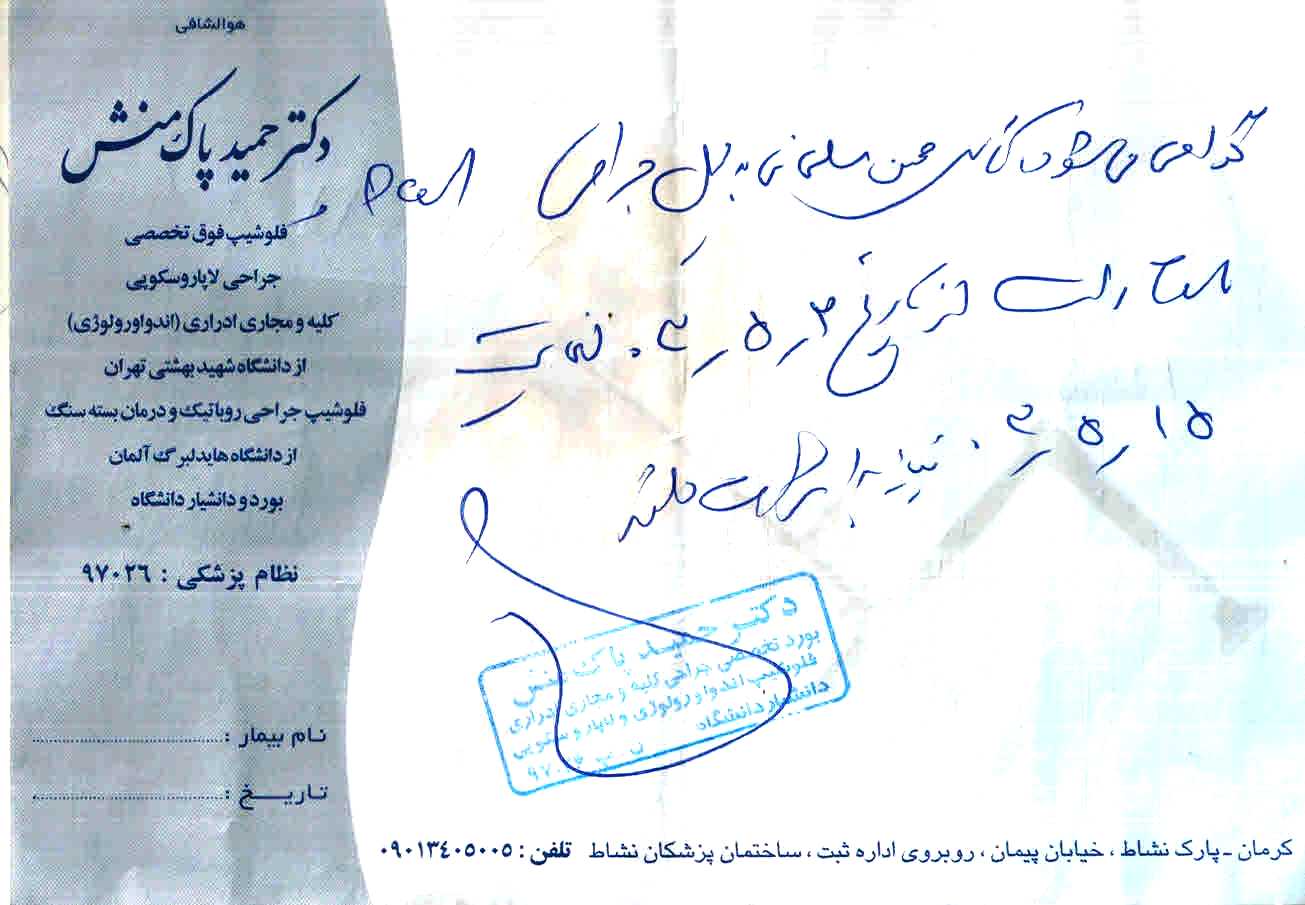 هوالشافی
دکتر حمید پاک منش
فلوشیپ فوق تخصصی
جراحی لاپاروسکوپی
کلیه و مجاری ادراری (اندواورولوژی)
از دانشگاه شهید بهشتی تهران
فلوشیپ جراحی روباتیک و درمان بسته سنگ
از دانشگاه هایدلبرگ آلمان
بورد و دانشیار دانشگاه
نظام پزشکی : ۹۷۰۲۶
نام بیمار :
تاریخ :
گواهی می شود آقای محسن سلمانی به دلیل جراحی
از تاریخ ۳ر۵ر۴۰۲ لغایت
۱۵ر۵ر۴۰۲ نیاز به استراحت
دکتر حمید پاک منش
بورد تخصصی جراحی کلیه و مجاری ادراری
فلوشیپ اندواورولوژی و لاپاروسکوپی
دانشیار دانشگاه
کرمان - پارک نشاط ، خیابان پیمان ، روبروی اداره ثبت ، ساختمان پزشکان نشاط تلفن : ۰۹۰۱۳۴۰۵۰۰۵